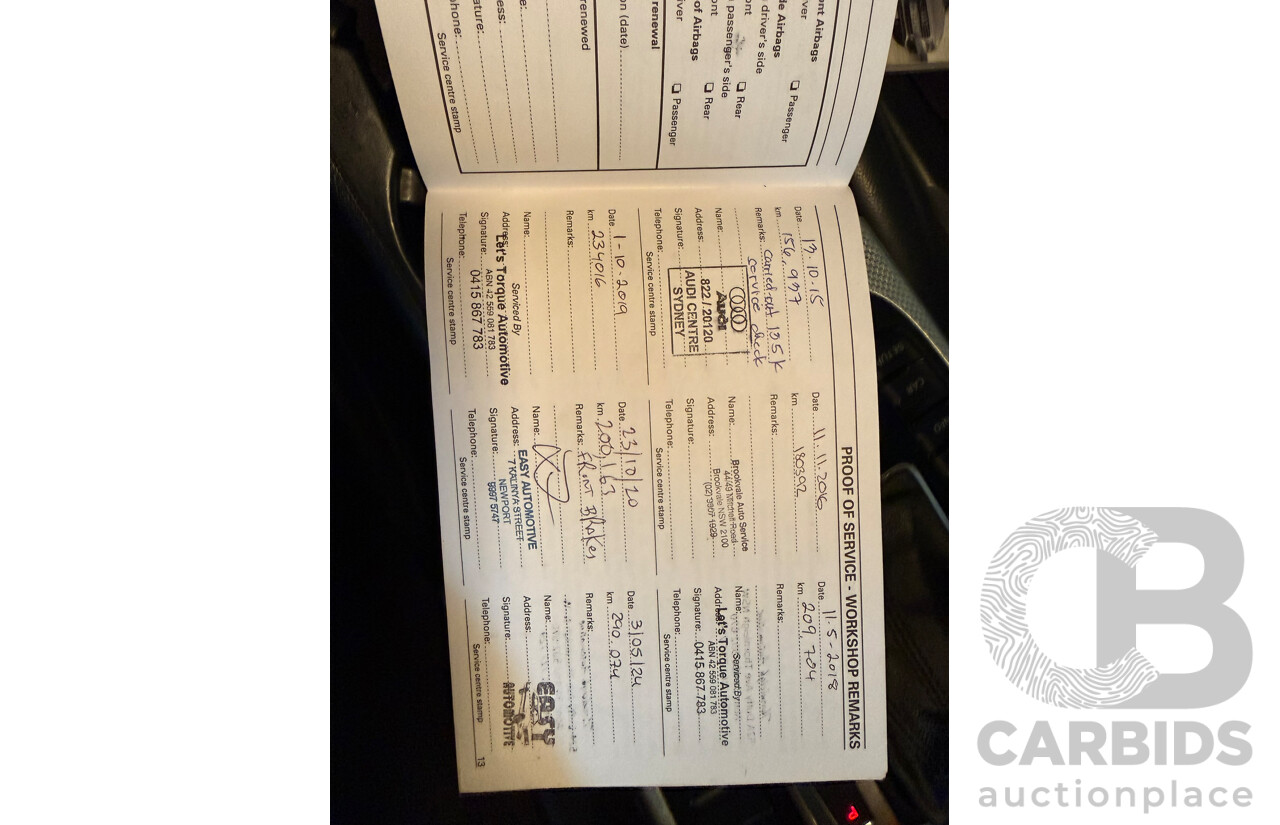 ont Airbags
iver
❏ Passenger
de Airbags
driver's side
ont
❏ Rear
passenger's side
ont
❏ Rear
of Airbags
iver
❏ Passenger
renewal
on (date)
renewed
e:
ess:
ature:
phone:
Service centre stamp
PROOF OF SERVICE - WORKSHOP REMARKS
Date 13.10.15
km 156,997
Remarks: Carried out 135K
service check
Name:
Audi
Address: 822 / 20120
AUDI CENTRE
Signature: SYDNEY
Telephone:
Service centre stamp
Date 11.11.2016
km 180392
Remarks:
Name: Brookvale Auto Service
44/49 Mitchell Road
Address: Brookvale NSW 2100
Signature:
Telephone:
Service centre stamp
Date 11-5-2018
km 209,704
Remarks:
Name: Serviced By
Address: Let's Torque Automotive
ABN 42 559 081 783
Signature: 0415 867 783
Telephone:
Service centre stamp
Date 1-10-2019
km 234016
Remarks:
Name: Serviced By
Address: Let's Torque Automotive
Signature: ABN 42 559 081 783
0415 867 783
Telephone:
Service centre stamp
Date 23/10/20
km 200,163
Remarks: FRONT BRAKES
Name:
EASY AUTOMOTIVE
Address: 7 KALINYA STREET
NEWPORT
Signature: 9997 5747
Telephone:
Service centre stamp
Date 3/05/24
km 290 074
Remarks:
Name:
EASY
Address:
AUTOMOTIVE
Signature:
Telephone:
Service centre stamp
13
SETUP
CAR
CB
CARBIDS
auctionplace